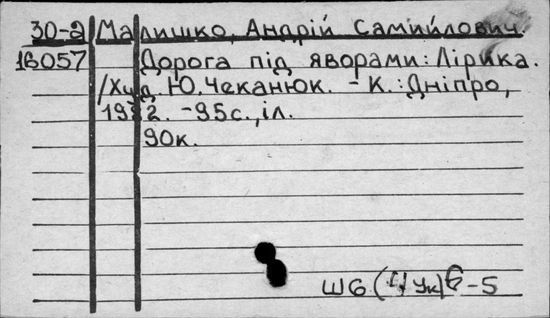 30-а Малишко, Андрій Самийлович.
18057 Дорога під яворами: Лірика.
/Худ. Ю. Чеканюк. - К.: Дніпро,
1982. - 95с., іл.
90к.
Ш6